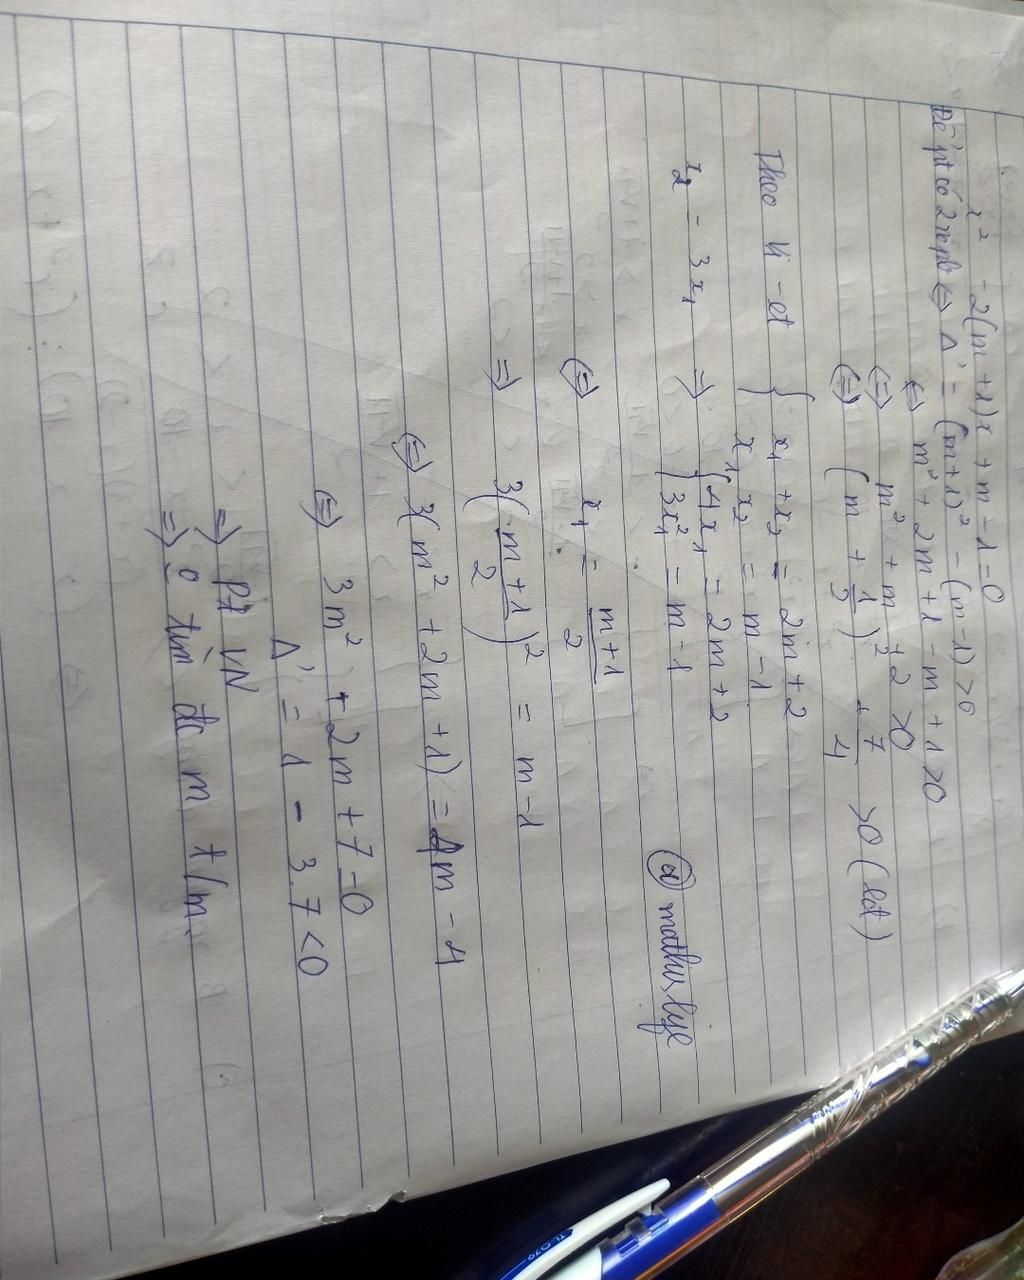 x² - 2(m+1)x + m - 1 = 0
Để pt có 2 nopb ⇔ Δ' = (m+1)² - (m-1) > 0
⇔ m² + 2m + 1 - m + 1 > 0
⇔ m² + m + 2 > 0
⇔ (m + 1/2)² + 7/4 > 0 (lđ)
Theo Vi-et { x₁ + x₂ = 2m + 2
x₁ x₂ = m - 1
x₂ - 3x₁ ⇒ { 4x₁ = 2m + 2
3x₁² = m - 1
@ mathis lye
⇔ x₁ = m+1/2
⇒ 3(m+1/2)² = m - 1
⇔ 3(m² + 2m + 1) = 4m - 4
⇔ 3m² + 2m + 7 = 0
Δ' = 1 - 3.7 < 0
⇒ Pt VN
⇒ o tìm đc m t/m.
TL-079